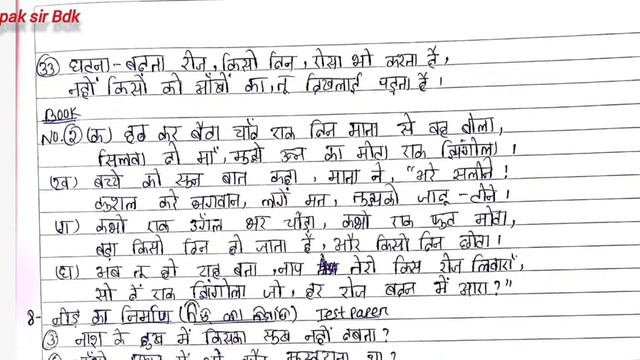 pak sir Bdk
33) घटना-बढ़ता रोज, किसी दिन, ऐसा भी करता है,
नहीं किसी की आँखों का, तू दिखलाई पड़ता है।
BOOK
NO.② (क) हठ कर बैठा चाँद एक दिन माता से वह बोला,
सिलवा दो माँ, मुझे ऊन का मोटा एक झिंगोला।
(ख) बच्चे की सुन बात कहा, माता ने, "अरे सलोने!
कुशल करे भगवान, लगें मत, तुझको जादू-टोने।
(ग) कभी एक उँगल भर चौड़ा, कभी एक फुट मोटा,
बड़ा किसी दिन हो जाता है, और किसी दिन छोटा।
(घ) अब तू ही यह बता, नाप तेरी किस रोज लिवाएँ,
सी दें एक झिंगोला जो, हर रोज बदन में आए?"
8- नीड़ का निर्माण Test Paper
③ नाश के दुख में किसका सुख नहीं दबता?